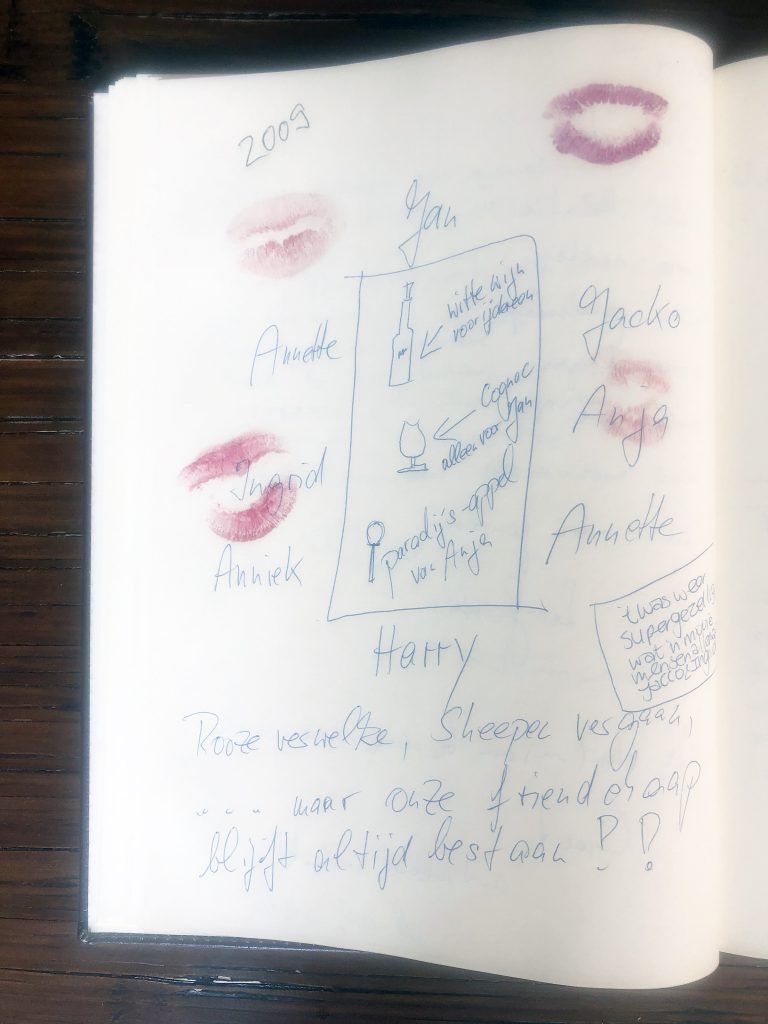 2009
Jan
witte wijn
voor ijdereen
Annette
Jacko
Cognac
alleen voor Jan
Anja
Ingrid
paradijs-appel
van Anja
Annette
Anniek
't was weer
supergezellig
wat 'n mooie
mensen allemaal
Harry
Rooze verwelke, Sheepen vergaan,
... maar onze friendchaap
blijft altijd bestaan !!